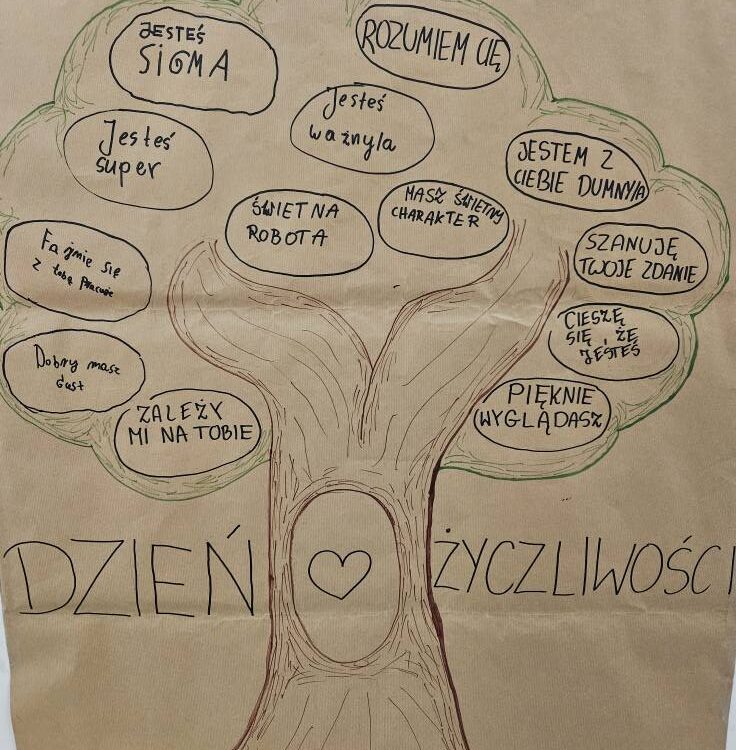 JESTEŚ
SIGMA
ROZUMIEM CIĘ
Jesteś
super
Jesteś
ważny/a
JESTEM Z
CIEBIE DUMNY/A
ŚWIETNA
ROBOTA
MASZ ŚWIETNY
CHARAKTER
Fajnie się
z tobą pracuje
SZANUJĘ
TWOJE ZDANIE
CIESZĘ
SIĘ, ŻE
JESTEŚ
Dobry masz
Gust
ZALEŻY
MI NA TOBIE
PIĘKNIE
WYGLĄDASZ
DZIEŃ ŻYCZLIWOŚCI